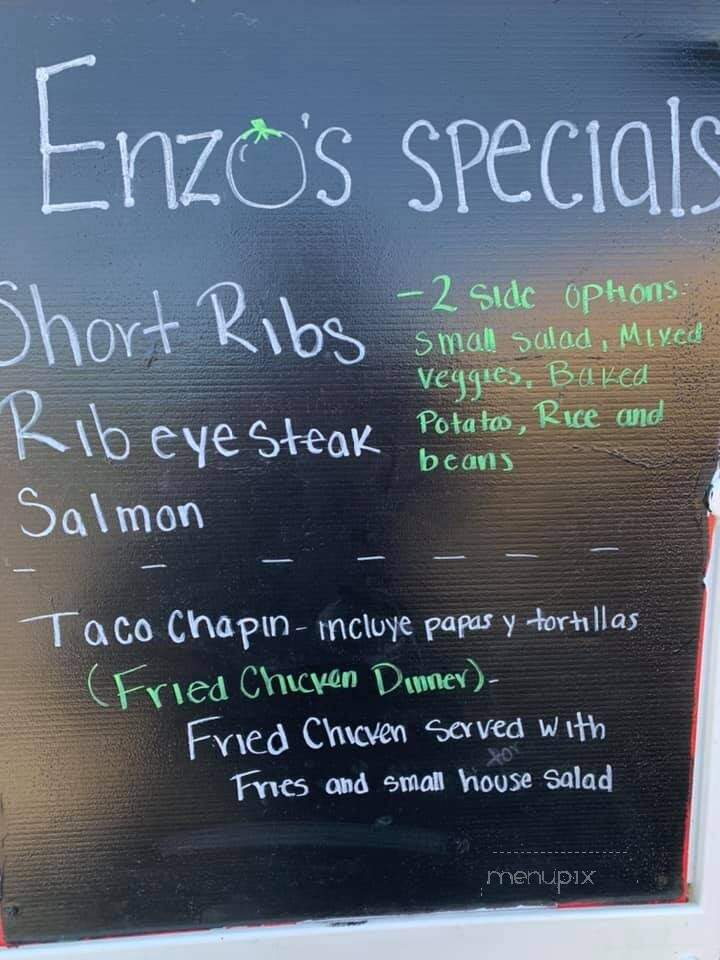 Enzo's specials
Short Ribs
-2 side options-
small salad, Mixed
veggies, Baked
Potatos, Rice and
beans
Rib eye steak
Salmon
Taco Chapin - incluye papas y tortillas
(Fried Chicken Dinner)-
Fried Chicken served with
Fries and small house salad
menupix